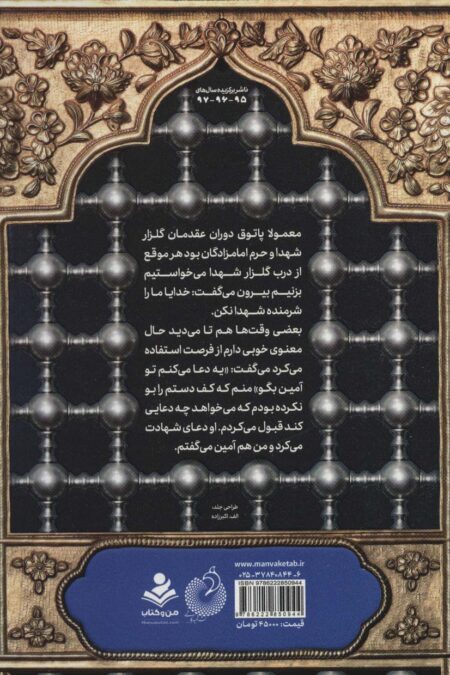 ناشر برگزیده سال‌های
۹۵-۹۶-۹۷
معمولا پاتوق دوران عقدمان گلزار
شهدا و حرم امامزادگان بود هر موقع
از درب گلزار شهدا می‌خواستیم
بزنیم بیرون می‌گفت: خدایا ما را
شرمنده شهدا نکن.
بعضی وقت‌ها هم تا می‌دید حال
معنوی خوبی دارم از فرصت استفاده
می‌کرد می‌گفت: «یه دعا می‌کنم تو
آمین بگو» منم که کف دستم را بو
نکرده بودم که می‌خواهد چه دعایی
کند قبول می‌کردم. او دعای شهادت
می‌کرد و من هم آمین می‌گفتم.
طراحی جلد:
الف. اکبرزاده
www.manvaketab.ir
۰۲۵-۳۷۸۴۰۸۴۴-۶
ISBN 9786222850944
9786222850944
قیمت: ۴۵۰۰۰ تومان
من و کتاب
Manvaketab.com